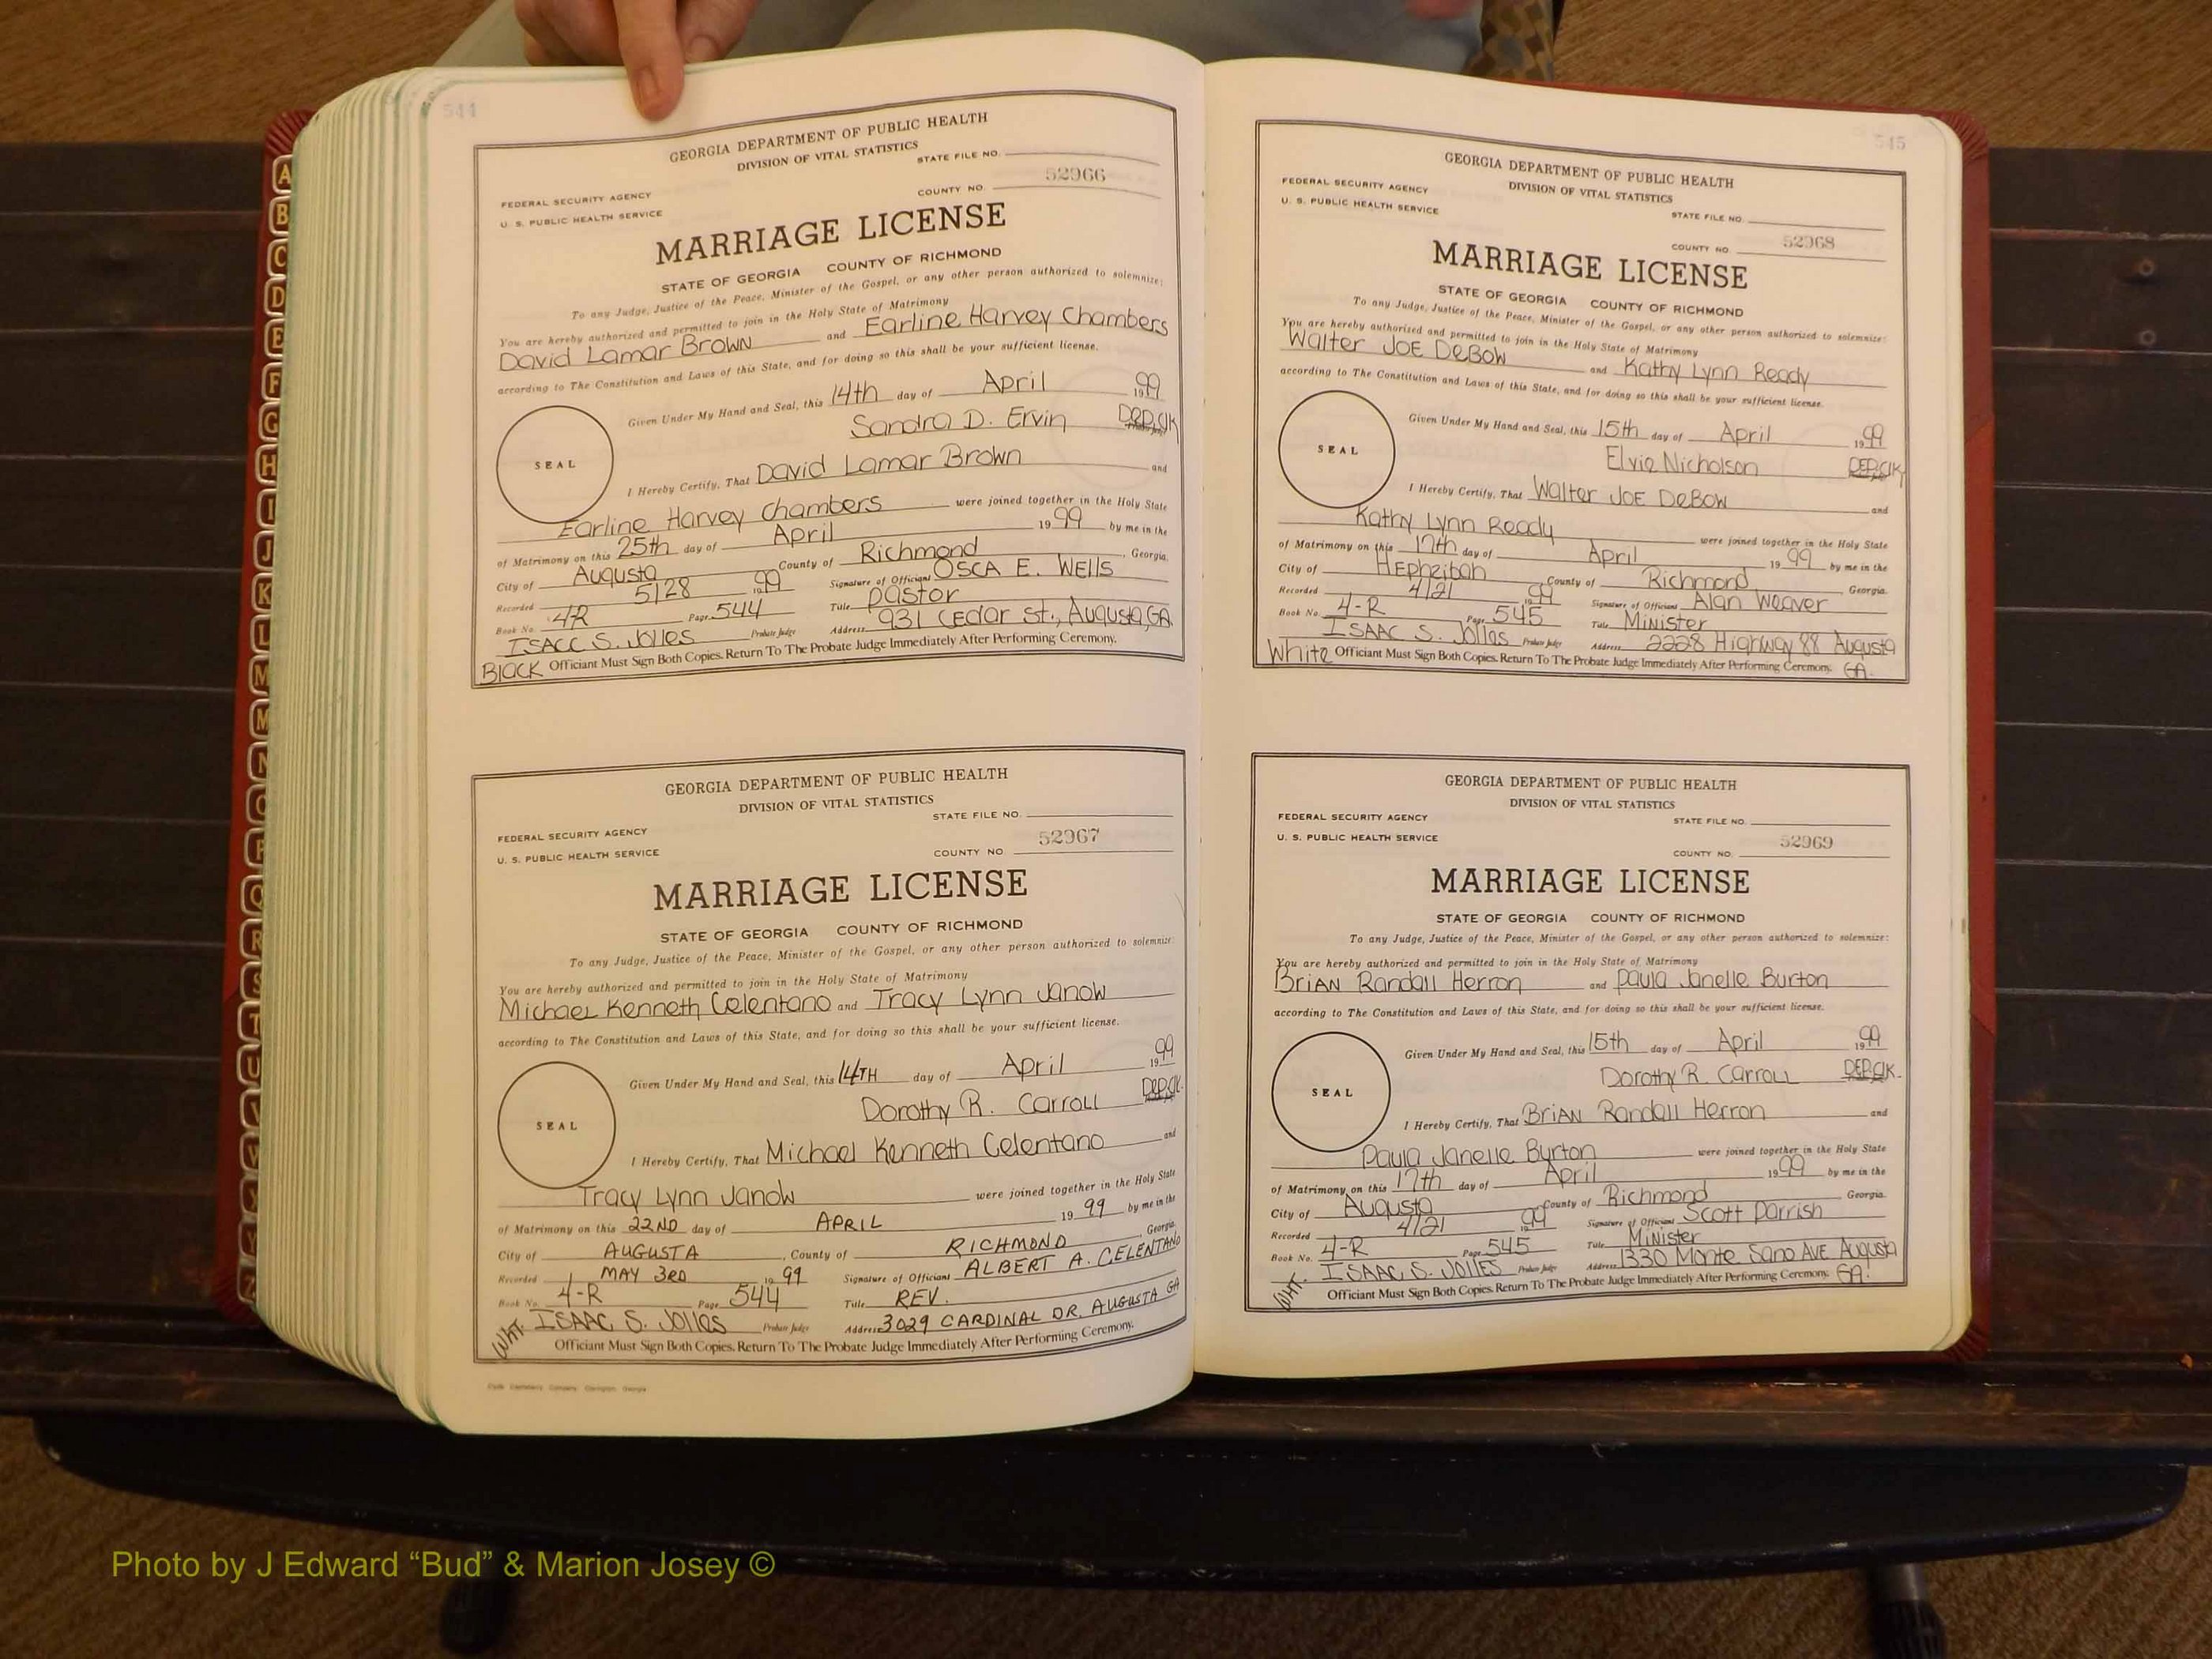 544
GEORGIA DEPARTMENT OF PUBLIC HEALTH
DIVISION OF VITAL STATISTICS
STATE FILE NO.
FEDERAL SECURITY AGENCY
U. S. PUBLIC HEALTH SERVICE
COUNTY NO. 52966
MARRIAGE LICENSE
STATE OF GEORGIA COUNTY OF RICHMOND
To any Judge, Justice of the Peace, Minister of the Gospel, or any other person authorized to solemnize:
You are hereby authorized and permitted to join in the Holy State of Matrimony
David Lamar Brown and Earline Harvey Chambers
according to The Constitution and Laws of this State, and for doing so this shall be your sufficient license.
Given Under My Hand and Seal, this 14th day of April 1999
Sandra D. Ervin Dep.Clk
SEAL
I Hereby Certify, That David Lamar Brown and
Earline Harvey Chambers were joined together in the Holy State
of Matrimony on this 25th day of April 1999 by me in the
City of Augusta County of Richmond, Georgia.
Recorded 5/28 1999 Signature of Officiant OSCA E. WEllS
Book No. 4R Page 544 Title Pastor
ISACC S. Jolles Probate Judge Address 931 CEdar St., Augusta, GA.
BlACK Officiant Must Sign Both Copies. Return To The Probate Judge Immediately After Performing Ceremony.
GEORGIA DEPARTMENT OF PUBLIC HEALTH
DIVISION OF VITAL STATISTICS
STATE FILE NO.
FEDERAL SECURITY AGENCY
U. S. PUBLIC HEALTH SERVICE
COUNTY NO 52967
MARRIAGE LICENSE
STATE OF GEORGIA COUNTY OF RICHMOND
To any Judge, Justice of the Peace, Minister of the Gospel, or any other person authorized to solemnize:
You are hereby authorized and permitted to join in the Holy State of Matrimony
Michael Kenneth Celentano and Tracy Lynn Janow
according to The Constitution and Laws of this State, and for doing so this shall be your sufficient license.
Given Under My Hand and Seal, this 14TH day of April 1999
Dorothy R. Carroll Dep.Clk.
SEAL
I Hereby Certify, That Michael Kenneth Celentano and
Tracy Lynn Janow were joined together in the Holy State
of Matrimony on this 22ND day of APRIL 1999 by me in the
City of AUGUSTA, County of RICHMOND Georgia.
Recorded MAY 3RD 1999 Signature of Officiant ALBERT A. CELENTANO
Book No. 4-R Page 544 Title REV.
WHT. ISAAC S. Jolles Probate Judge Address 3029 CARDINAL DR. AUGUSTA GA
Officiant Must Sign Both Copies. Return To The Probate Judge Immediately After Performing Ceremony.
545
GEORGIA DEPARTMENT OF PUBLIC HEALTH
DIVISION OF VITAL STATISTICS
FEDERAL SECURITY AGENCY
U. S. PUBLIC HEALTH SERVICE
STATE FILE NO.
COUNTY NO. 52968
MARRIAGE LICENSE
STATE OF GEORGIA COUNTY OF RICHMOND
To any Judge, Justice of the Peace, Minister of the Gospel, or any other person authorized to solemnize:
You are hereby authorized and permitted to join in the Holy State of Matrimony
Walter JOE DeBow and Kathy Lynn Ready
according to The Constitution and Laws of this State, and for doing so this shall be your sufficient license.
Given Under My Hand and Seal, this 15th day of April 1999
Elvie Nicholson DEP.Clk
SEAL
I Hereby Certify, That Walter JOE DeBow and
Kathy Lynn Ready were joined together in the Holy State
of Matrimony on this 17th day of April 1999 by me in the
City of HEphzibah County of Richmond Georgia.
Recorded 4/21 1999 Signature of Officiant Alan Weaver
Book No. 4-R Page 545 Title Minister
ISAAC S. Jolles Probate Judge Address 2228 Highway 88 Augusta
White Officiant Must Sign Both Copies. Return To The Probate Judge Immediately After Performing Ceremony. GA.
GEORGIA DEPARTMENT OF PUBLIC HEALTH
DIVISION OF VITAL STATISTICS
FEDERAL SECURITY AGENCY
STATE FILE NO.
U. S. PUBLIC HEALTH SERVICE
COUNTY NO. 52969
MARRIAGE LICENSE
STATE OF GEORGIA COUNTY OF RICHMOND
To any Judge, Justice of the Peace, Minister of the Gospel, or any other person authorized to solemnize:
You are hereby authorized and permitted to join in the Holy State of Matrimony
BriAN Randall Herron and Paula Janelle Burton
according to The Constitution and Laws of this State, and for doing so this shall be your sufficient license.
Given Under My Hand and Seal, this 15th day of April 1999
Dorothy R. Carroll DEP.Clk.
SEAL
I Hereby Certify, That BriAN Randall Herron and
Paula Janelle Burton were joined together in the Holy State
of Matrimony on this 17th day of April 1999 by me in the
City of Augusta County of Richmond Georgia.
Recorded 4/21 99 Signature of Officiant Scott Parrish
Book No. 4-R Page 545 Title Minister
WHT. ISAAC S. JOllES Probate Judge Address 1330 Monte Sano AVE Augusta
Officiant Must Sign Both Copies. Return To The Probate Judge Immediately After Performing Ceremony. GA.
A
B
C
D
E
F
G
H
I
J
K
L
M
M
N
O
P
Q
R
S
T
U
V
W
X
Y
Z
Photo by J Edward “Bud” & Marion Josey ©